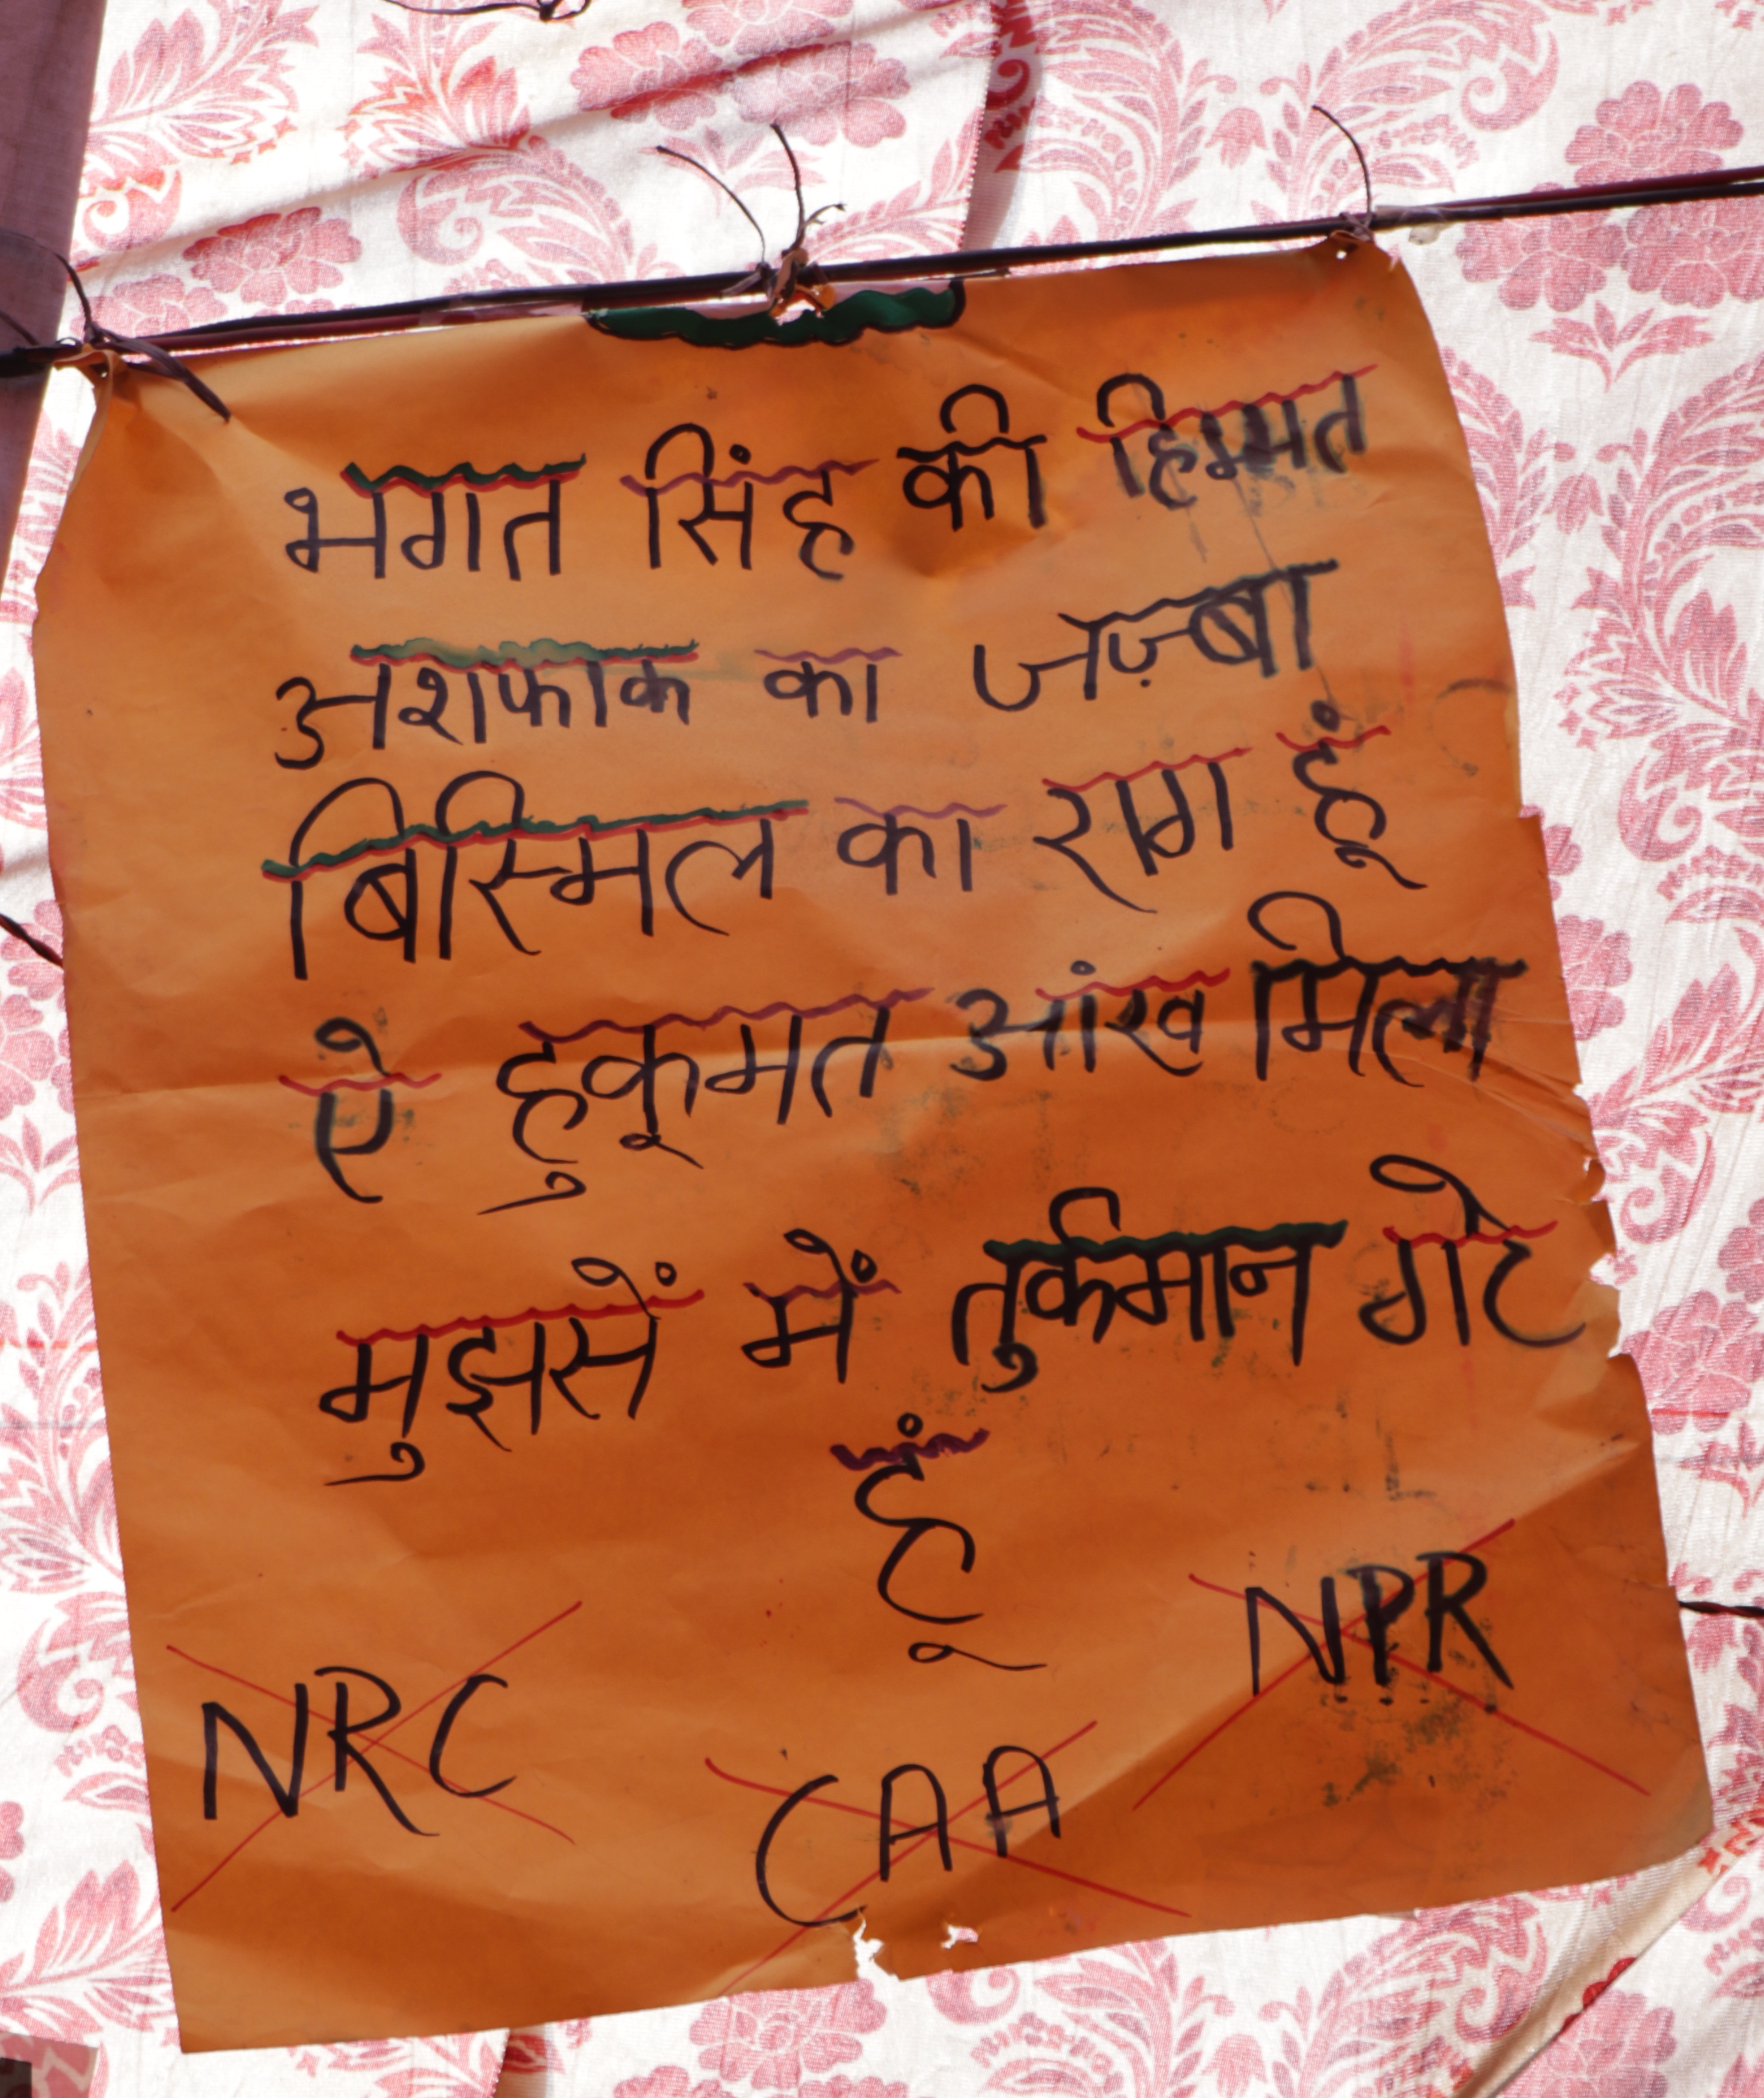 भगत सिंह की हिम्मत
अशफाक का जज़्बा
बिस्मिल का राग हूं
ऐ हुकूमत आंख मिला
मुझसें में तुर्कमान गेट
हूं
NRC CAA NPR